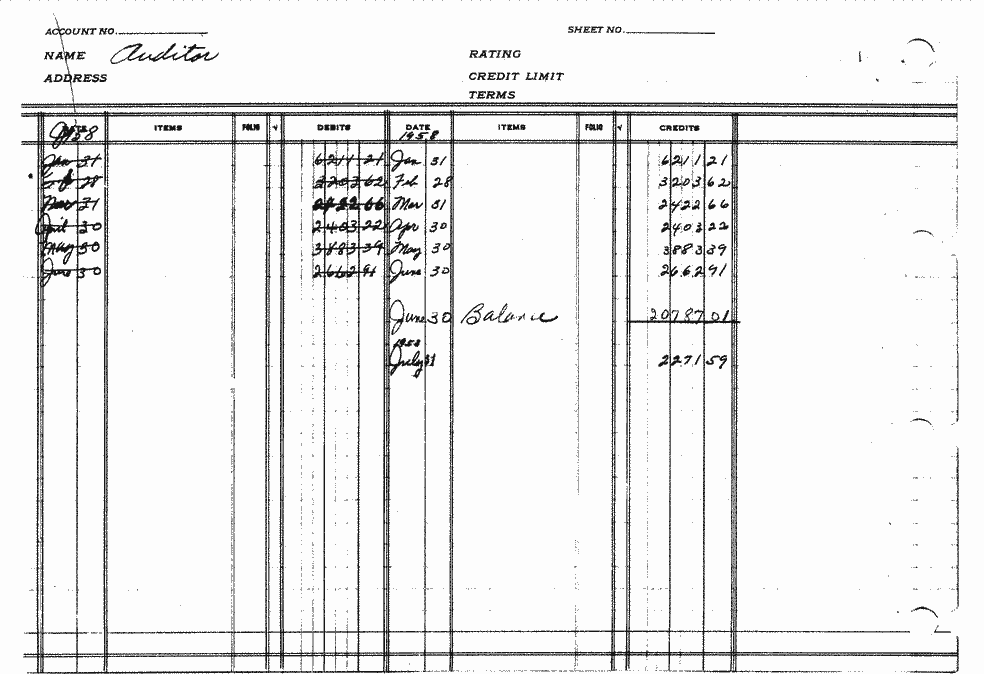 ACCOUNT NO. SHEET NO.
NAME Auditor RATING
ADDRESS CREDIT LIMIT
TERMS
ITEMS FOLIO √ DEBITS DATE ITEMS FOLIO √ CREDITS
1958
Jan 31 6211 21 Jan 31 6211 21
28 3203 62 Feb 28 3203 62
Mar 31 2422 66 Mar 31 2422 66
April 30 2403 22 Apr 30 2403 22
May 30 3883 39 May 30 3883 39
June 30 2662 91 June 30 2662 91
June 30 Balance 20787 01
1958
July 31 2271 59